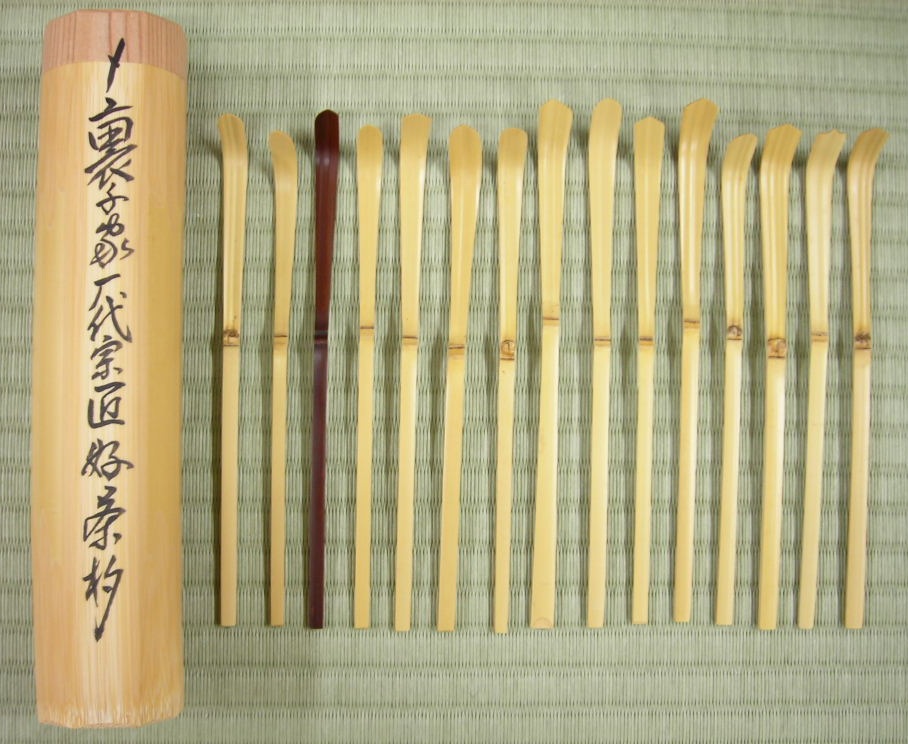 〆裏千家歴代宗匠好茶杓